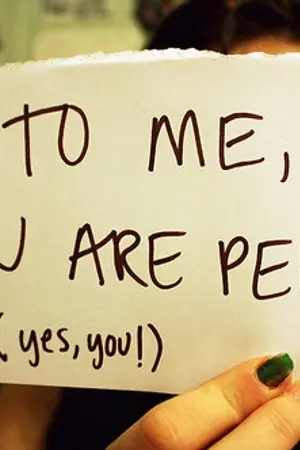 TO ME,
ARE
(yes, you!)